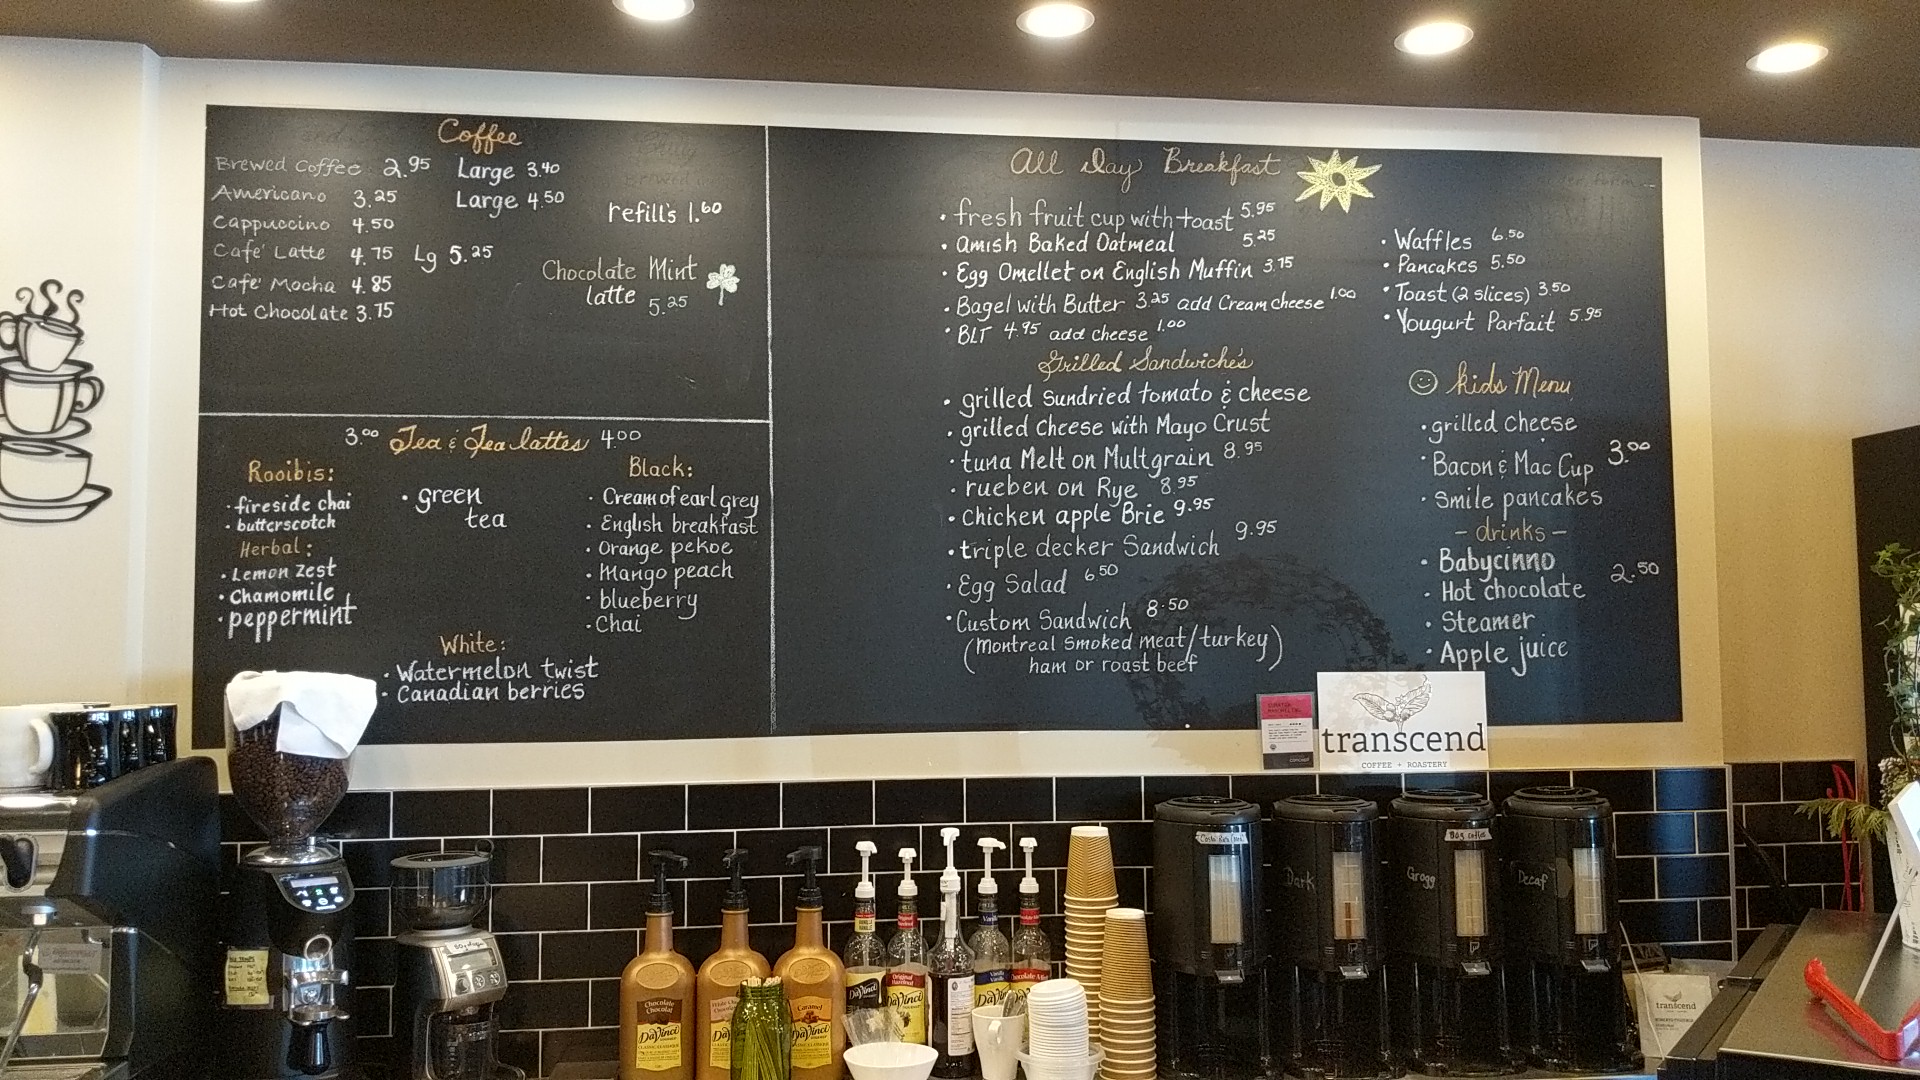 Coffee
Brewed Coffee 2.95 Large 3.40
Americano 3.25 Large 4.50
Cappuccino 4.50
Cafe' Latte 4.75 Lg 5.25
Cafe' Mocha 4.85
Hot Chocolate 3.75
refill's 1.60
Chocolate Mint
latte 5.25
3.00 Tea & Tea lattes 4.00
Rooibis:
· fireside chai
· butterscotch
Herbal:
· Lemon Zest
· Chamomile
· peppermint
· green
tea
Black:
· Cream of earl grey
· English breakfast
· Orange pekoe
· Mango peach
· blueberry
· Chai
White:
· Watermelon twist
· Canadian berries
All Day Breakfast
· fresh fruit cup with toast 5.95
· Amish Baked Oatmeal 5.25
· Egg Omellet on English Muffin 3.75
· Bagel with Butter 3.25 add Cream cheese 1.00
· BLT 4.95 add cheese 1.00
· Waffles 6.50
· Pancakes 5.50
· Toast (2 slices) 3.50
· Yougurt Parfait 5.95
Grilled Sandwiche's
· grilled sundried tomato & cheese
· grilled cheese with Mayo Crust
· tuna Melt on Multgrain 8.95
· rueben on Rye 8.95
· Chicken apple Brie 9.95
· triple decker Sandwich 9.95
· Egg Salad 6.50
· Custom Sandwich 8.50
(Montreal Smoked meat/turkey)
ham or roast beef
kids Menu
· grilled cheese
· Bacon & Mac Cup 3.00
· Smile pancakes
- drinks -
· Babycinno
· Hot chocolate 2.50
· Steamer
· Apple juice
transcend
COFFEE + ROASTERY
Dark
Grogg
Decaf
Chocolate
Chocolat
DaVinci
DaVinci
Caramel
DaVinci
DaVinci
Original
Hazelnut
DaVinci
Vanilla
Chocolate Mint
DaVinci
transcend